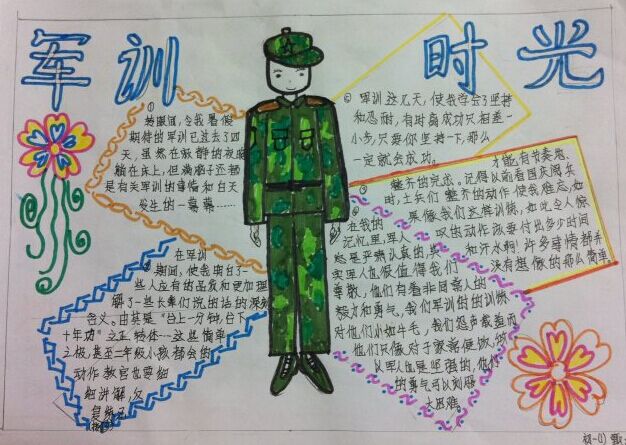 军训 时光
①
转眼间,令我暑假
期待的军训已过去了四
天,虽然在寂静的夜晚
躺在床上,但满脑子还都
是有关军训的事情和白天
发生的一幕幕……
在军训
期间,使我明白了一
些人应有的品质和更加理
解了一些长辈们说的话的深刻
含义。尤其是“台上一分钟,台下
十年功”立正转体…这些简单
之极,甚至一年级小孩都会的
动作教官也要细
细讲解,反
复练习
军训这几天,使我学会了坚持
和忍耐,有时离成功只相差一
小步,只要你坚持一下,那么
一定就会成功。
才能有节奏地、
整齐的完成。记得以前看国庆阅兵
时,士兵们整齐的动作使我难忘,如
果像我们这样训练,如此令人惊
叹的动作该要付出多少时间
和汗水啊!许多事情都并
没有想像的那么简单。
在我的
记忆里,军人
总是严肃认真的,其
实军人也很值得我们
尊敬,他们有着非同寻人的
毅力和勇气,我们军训似的训练
对他们小如牛毛,我们怨声载道而
他们只像对于家常便饭,所
以军人也是坚强的,他们
的勇气可以刻服
大困难。
初一(1)